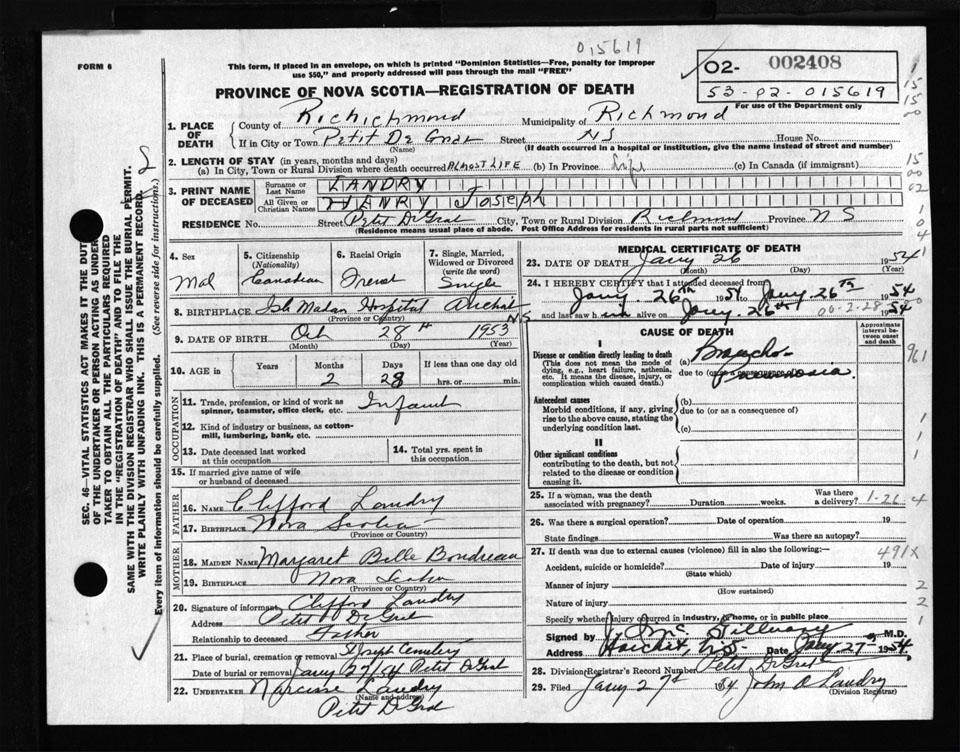 015619
FORM 6
This form, if placed in an envelope, on which is printed "Dominion Statistics—Free, penalty for improper
use $50," and properly addressed will pass through the mail "FREE"
02- 002408
53-02-015619
For use of the Department only
PROVINCE OF NOVA SCOTIA—REGISTRATION OF DEATH
1. PLACE OF DEATH
County of Richichmond Municipality of Richmond
If in City or Town Petit De Grat Street NS House No.
(Name) (If death occurred in a hospital or institution, give the name instead of street and number)
2. LENGTH OF STAY (in years, months and days)
(a) In City, Town or Rural Division where death occurred ALMOST LIFE (b) In Province Life (c) In Canada (if immigrant)
3. PRINT NAME OF DECEASED
Surname or Last Name LANDRY
All Given or Christian Names HENRY Joseph
RESIDENCE No. Street Petit DeGrat City, Town or Rural Division Richmond Province NS
(Residence means usual place of abode. Post Office Address for residents in rural parts not sufficient)
4. Sex
Mal
5. Citizenship
(Nationality)
Canadian
6. Racial Origin
French
7. Single, Married, Widowed or Divorced
(write the word)
Single
8. BIRTHPLACE Hospital Arichat NS
(Province or Country)
9. DATE OF BIRTH Oct 28th 1953
(Month) (Day) (Year)
10. AGE in
Years Months Days If less than one day old
2 28 hrs. or min.
OCCUPATION
11. Trade, profession, or kind of work as
spinner, teamster, office clerk, etc. Infant
12. Kind of industry or business, as cotton-
mill, lumbering, bank, etc.
13. Date deceased last worked
at this occupation
14. Total yrs. spent in
this occupation
15. If married give name of wife
or husband of deceased
FATHER
16. NAME Clifford Landry
17. BIRTHPLACE Nova Scotia
(Province or Country)
MOTHER
18. MAIDEN NAME Margaret Belle Boudreau
19. BIRTHPLACE Nova Scotia
(Province or Country)
20. Signature of informant Clifford Landry
Address Petit DeGrat
Relationship to deceased Father
21. Place of burial, cremation or removal St Joseph Cemetery
Date of burial or removal Jany 27/54 Petit DeGrat
22. UNDERTAKER Narcisse Landry
(Name and address)
Petit DeGrat
MEDICAL CERTIFICATE OF DEATH
23. DATE OF DEATH Jany 26 1954
(Month) (Day)
24. I HEREBY CERTIFY that I attended deceased from
Jany. 26th 1954 to Jany 26th 1954
and last saw him alive on Jany. 26th 1954
00-2-28
CAUSE OF DEATH
Approximate interval between onset and death
I
Disease or condition directly leading to death
(This does not mean the mode of
dying, e.g., heart failure, asthenia,
etc. It means the disease, injury, or
complication which caused death.)
(a) Broncho-
due to (or as a consequence of)
pneumonia.
Antecedent causes
Morbid conditions, if any, giving
rise to the above cause, stating the
underlying condition last.
(b)
due to (or as a consequence of)
(c)
II
Other significant conditions
contributing to the death, but not
related to the disease or condition
causing it.
25. If a woman, was the death
associated with pregnancy? Duration weeks. Was there
a delivery? 1-26-4
26. Was there a surgical operation? Date of operation 19
State findings Was there an autopsy?
27. If death was due to external causes (violence) fill in also the following:
491X
Accident, suicide or homicide? Date of injury 19
(State which)
Manner of injury
(How sustained)
Nature of injury
Specify whether injury occurred in industry, or home, or in public place
Signed by M.D.
Address Arichat, N.S. Date Jany 27th 1954
28. Division Registrar's Record Number Petit DeGrat
29. Filed Jany 27th 54 John A Landry
(Division Registrar)
SEC. 46—VITAL STATISTICS ACT MAKES IT THE DUTY
OF THE UNDERTAKER OR PERSON ACTING AS UNDER-
TAKER TO OBTAIN ALL THE PARTICULARS REQUIRED
IN THE "REGISTRATION OF DEATH" AND TO FILE THE
SAME WITH THE DIVISION REGISTRAR WHO SHALL ISSUE THE BURIAL PERMIT.
WRITE PLAINLY WITH UNFADING INK. THIS IS A PERMANENT RECORD.
Every item of information should be carefully supplied. (See reverse side for instructions.)
15
15
00
15
00
02
1
0
4
961
1
1
1
2
2
1